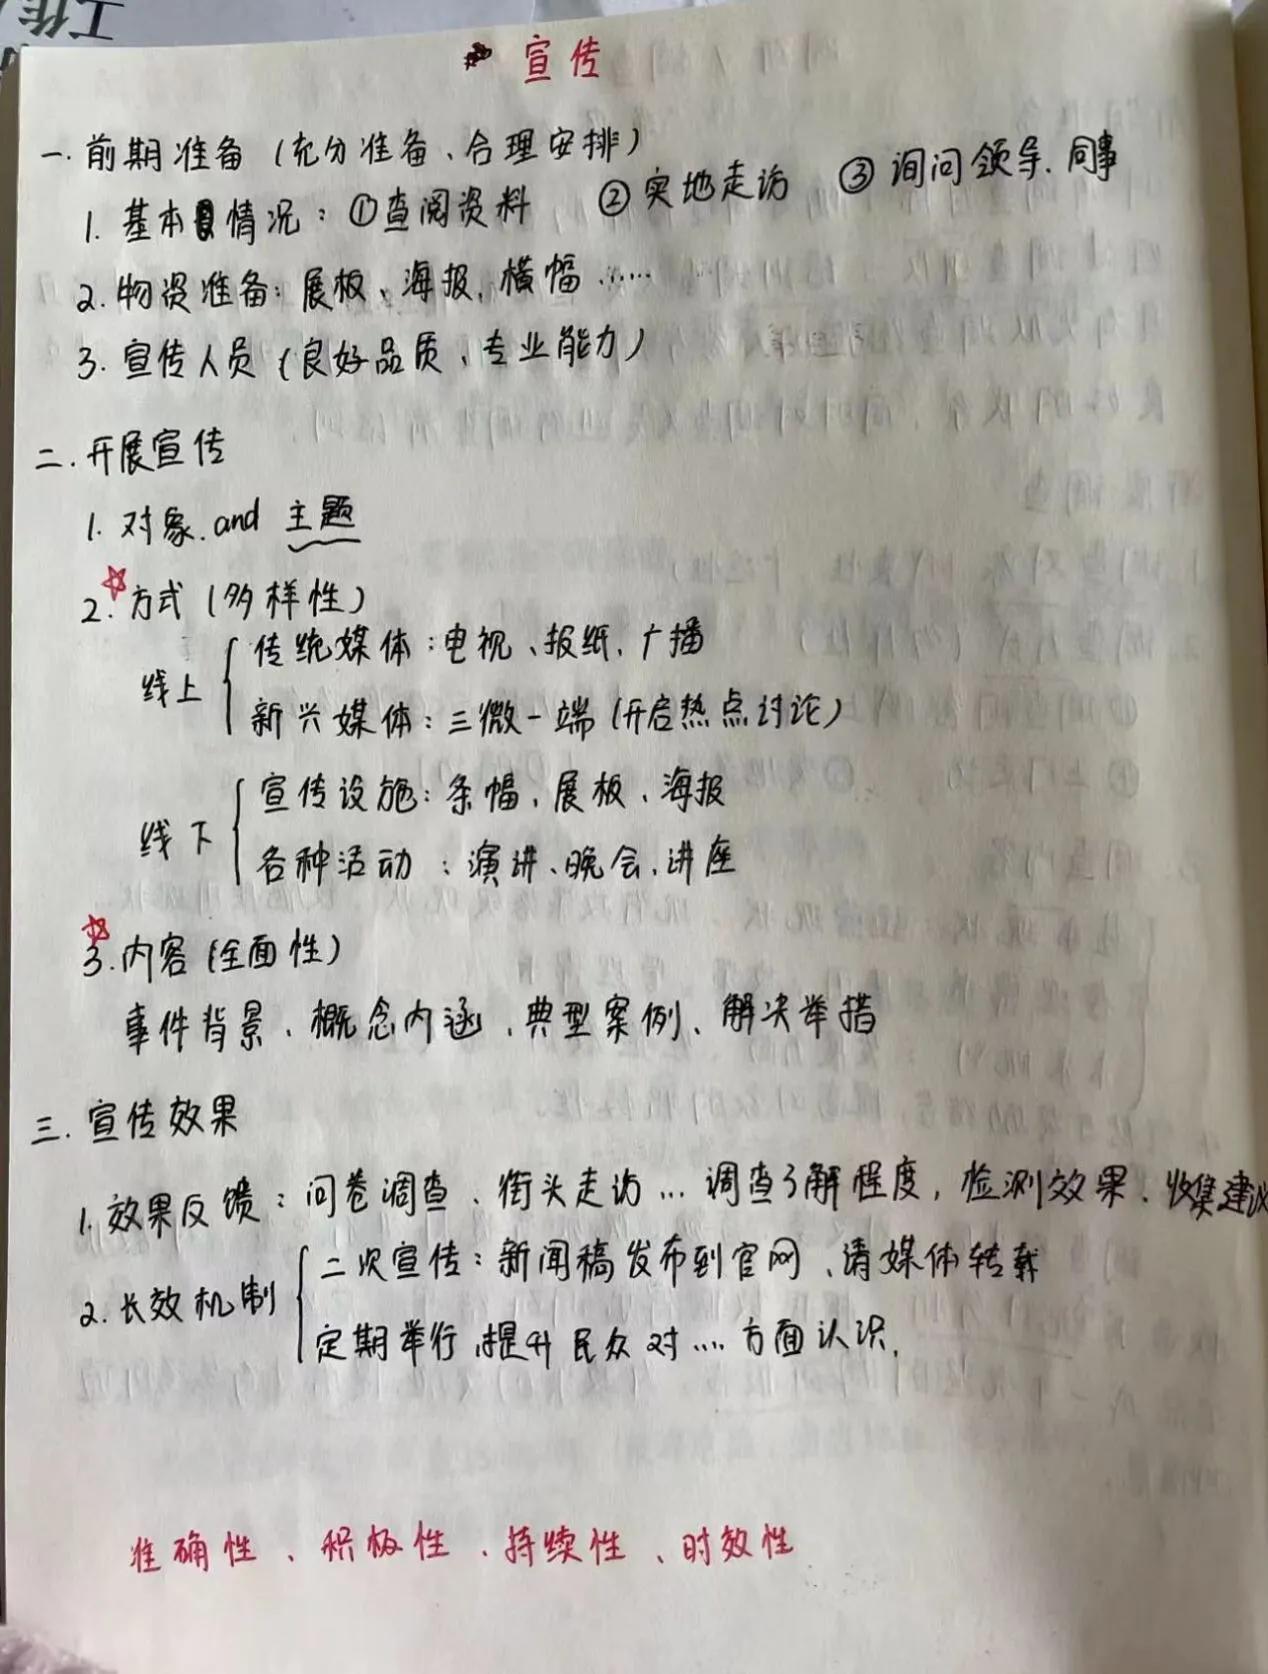 宣传
一.前期准备(充分准备、合理安排)
1.基本情况:①查阅资料 ②实地走访 ③询问领导、同事
2.物资准备:展板、海报、横幅……
3.宣传人员(良好品质、专业能力)
二.开展宣传
1.对象.and 主题
2.方式(多样性)
线上
传统媒体:电视、报纸、广播
新兴媒体:三微一端(开启热点讨论)
线下
宣传设施:条幅、展板、海报
各种活动:演讲、晚会、讲座
3.内容(全面性)
事件背景、概念内涵、典型案例、解决举措
三.宣传效果
1.效果反馈:问卷调查、街头走访…调查了解程度,检测效果、收集建议
2.长效机制
二次宣传:新闻稿发布到官网、请媒体转载
定期举行,提升民众对....方面认识.
准确性、积极性、持续性、时效性